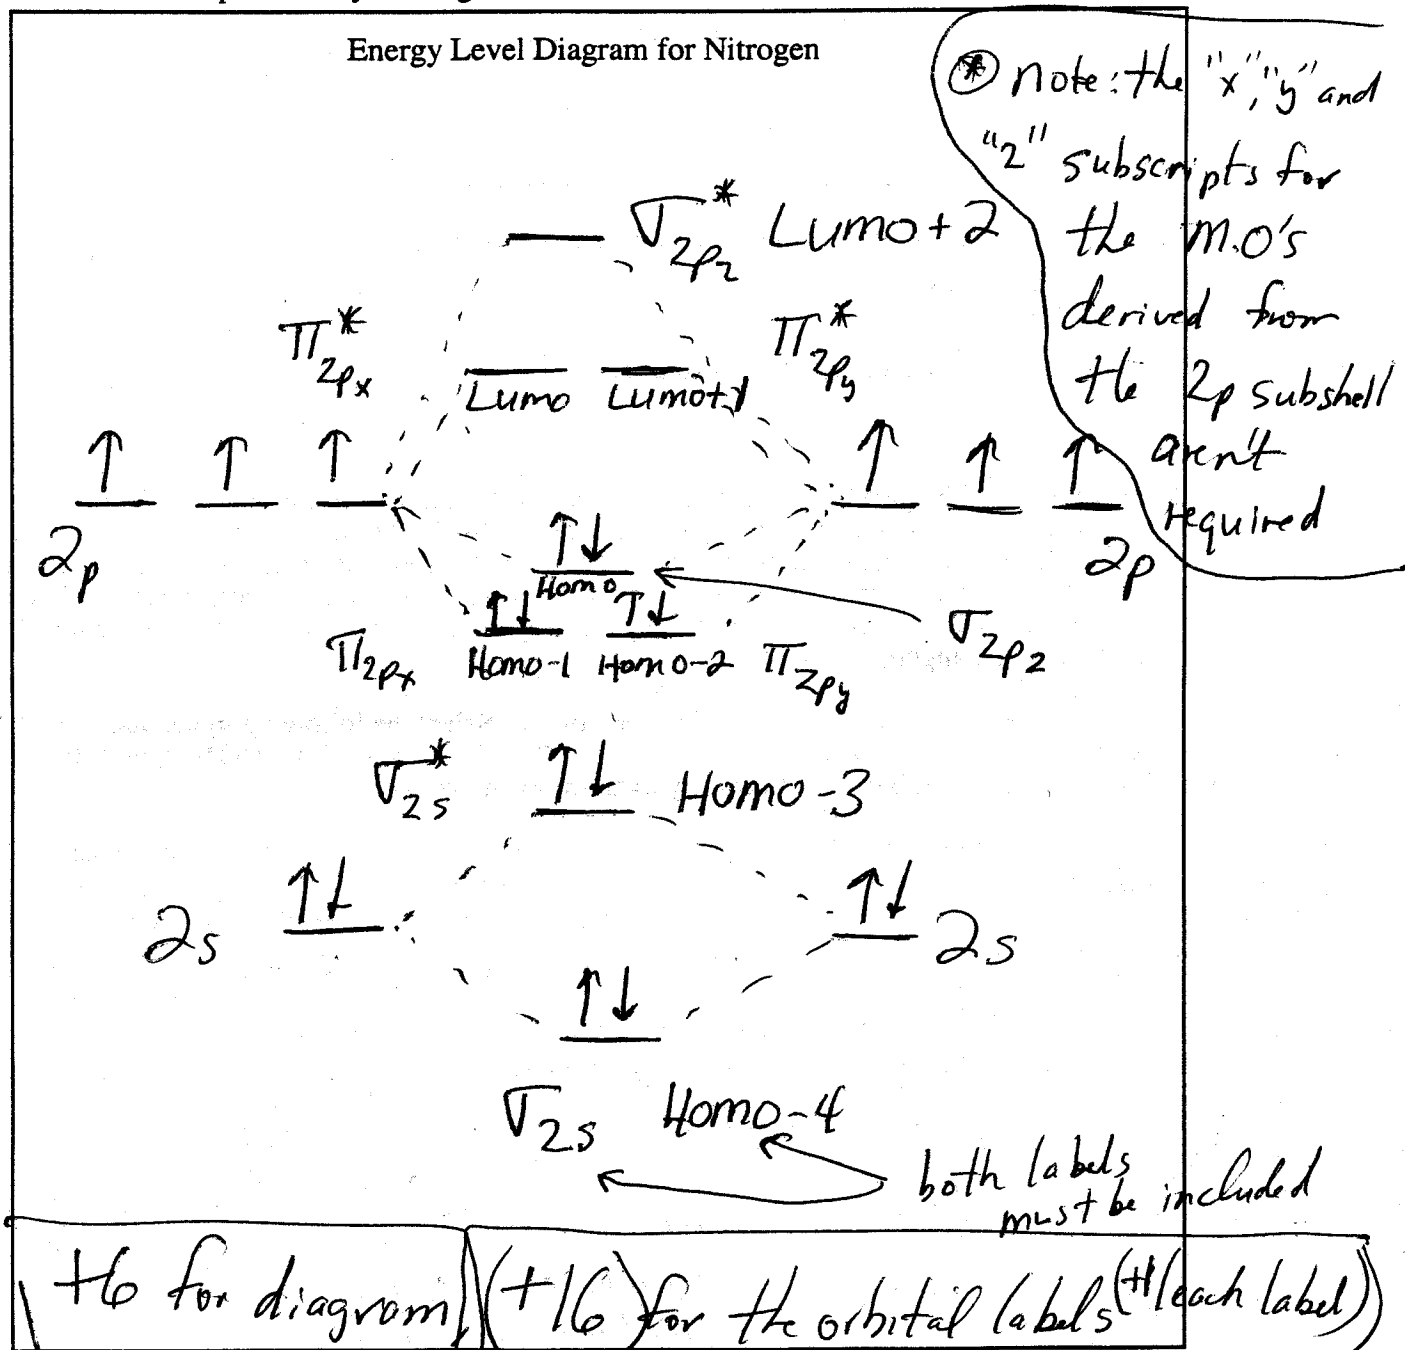 Energy Level Diagram for Nitrogen
* note: the "x", "y" and
"z" subscripts for
the M.O's
derived from
the 2p subshell
aren't
required
σ*2pz Lumo+2
π*2px π*2py
Lumo Lumo+1
↑ ↑ ↑ ↑ ↑ ↑
2p 2p
↑↓
Homo
↑↓ ↑↓
σ2pz
π2px Homo-1 Homo-2 π2py
σ*2s ↑↓ Homo-3
2s ↑↓ ↑↓ 2s
↑↓
σ2s Homo-4
both labels
must be included
+6 for diagram (+16) for the orbital labels (+1/each label)